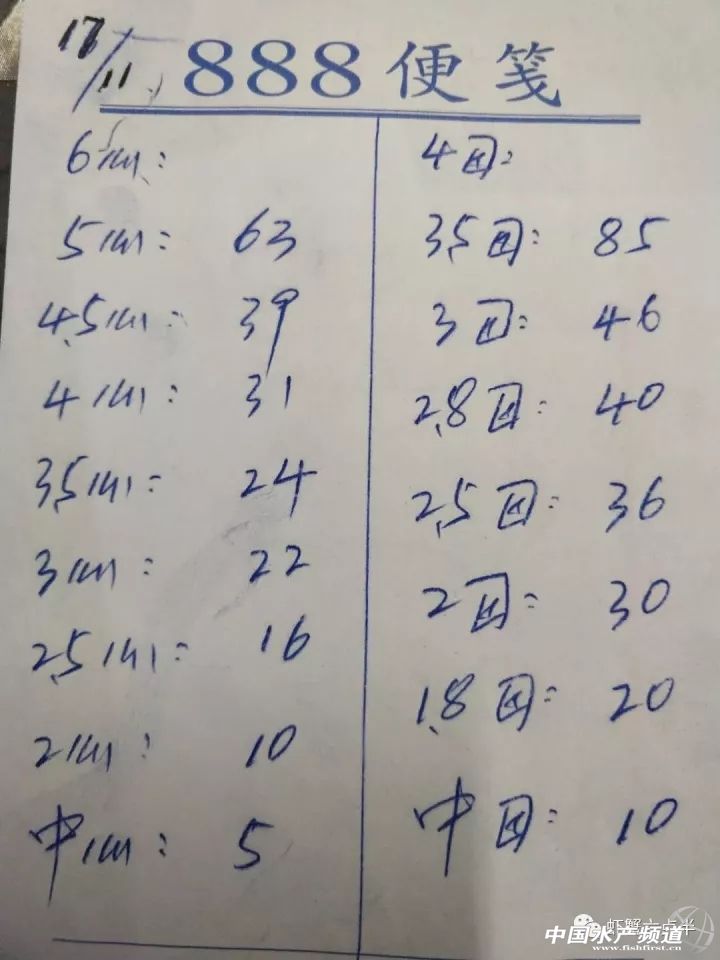 17/11
888便笺
6仙:
5仙: 63
4.5仙: 39
4仙: 31
3.5仙: 24
3仙: 22
2.5仙: 16
2仙: 10
中仙: 5
4团:
3.5团: 85
3团: 46
2.8团: 40
2.5团: 36
2团: 30
1.8团: 20
中团: 10
虾蟹六点半
中国水产频道
www.fishfirst.cn